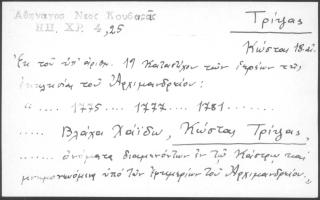 Αθηναγος Νεος Κουβαρᾶ
ΗΠ. ΧΡ. 4, 25
Τρίγας
Κώστας 18 αἰ.
Ἐκ τοῦ ὑπ' ἀριθμ. 19 Καταστίχου τῶν ἱερέων τῆς
ἐκκλησίας τοῦ Ἀρχιμανδρείου:
" ..... 1775 ..... 1777 .... 1781 ........
..... Βλάχα Χαΐδω, Κώστας Τρίγας,
..... ὀνόματα διαμενόντων ἐν τῷ Κάστρῳ καὶ
μνημονευόμενα ὑπὸ τῶν ἐφημερίων τοῦ Ἀρχιμανδρείου."